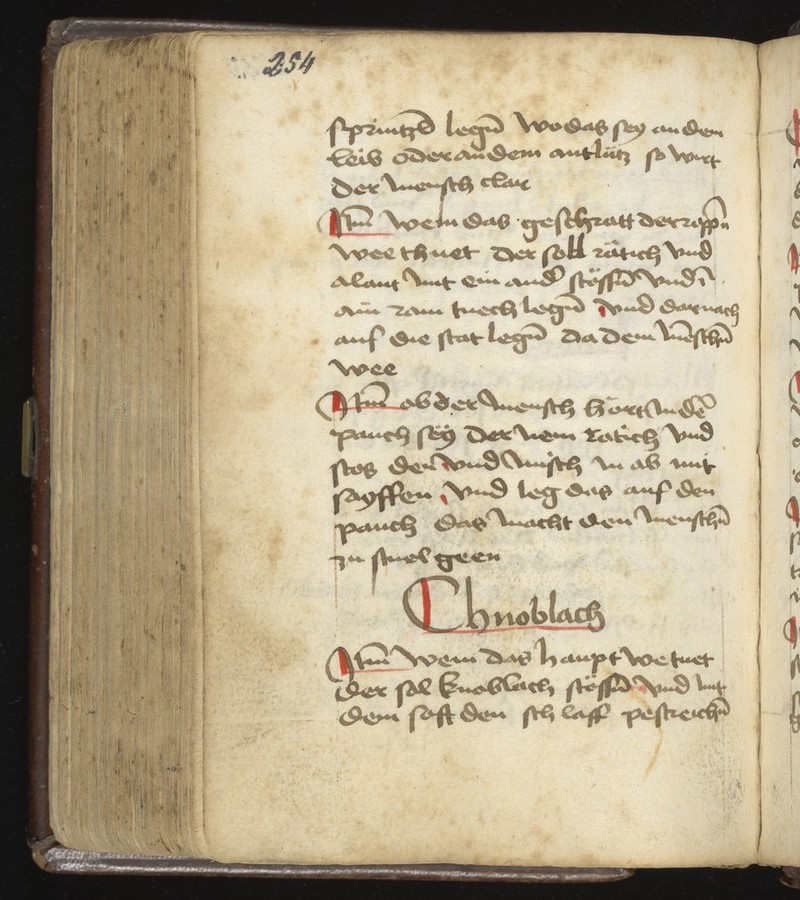 254
sprintzñ legñ wo das sey an dem
leib oder an dem antlütz so wirt
der mensch clar
Itm̃ wem das geschratt der
wee thuet der soll rätich vnd
alant mit ein and̃ stössñ vnd ĩ
ain legñ vnd darnach
auf die stat legñ da dem mẽschñ
wee
Itm̃ ob der mensch hört in dẽ
pauch sey der nem rätich vnd
stos den vnd misch in ab mit
sayffen vnd leg das auf den
pauch das macht den menschñ
zu stuel geen
Chnoblach
Itm̃ wem das haupt we tuet
der sol knoblach stössñ vnd mit
dem soft den schlaff pestreichñ